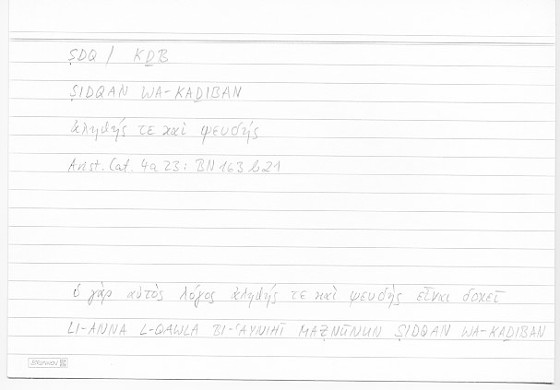 ṢDQ / KḎB
ṢIDQAN WA-KAḎIBAN
ἀληθής τε καὶ ψευδής
Arist. Cat. 4a 23; BN 163 b 21
ὁ γὰρ αὐτὸς λόγος ἀληθής τε καὶ ψευδὴς εἶναι δοκεῖ
LI-ANNA L-QAWLA BI-ʿAYNIHĪ MAẒNŪNUN ṢIDQAN WA-KAḎIBAN